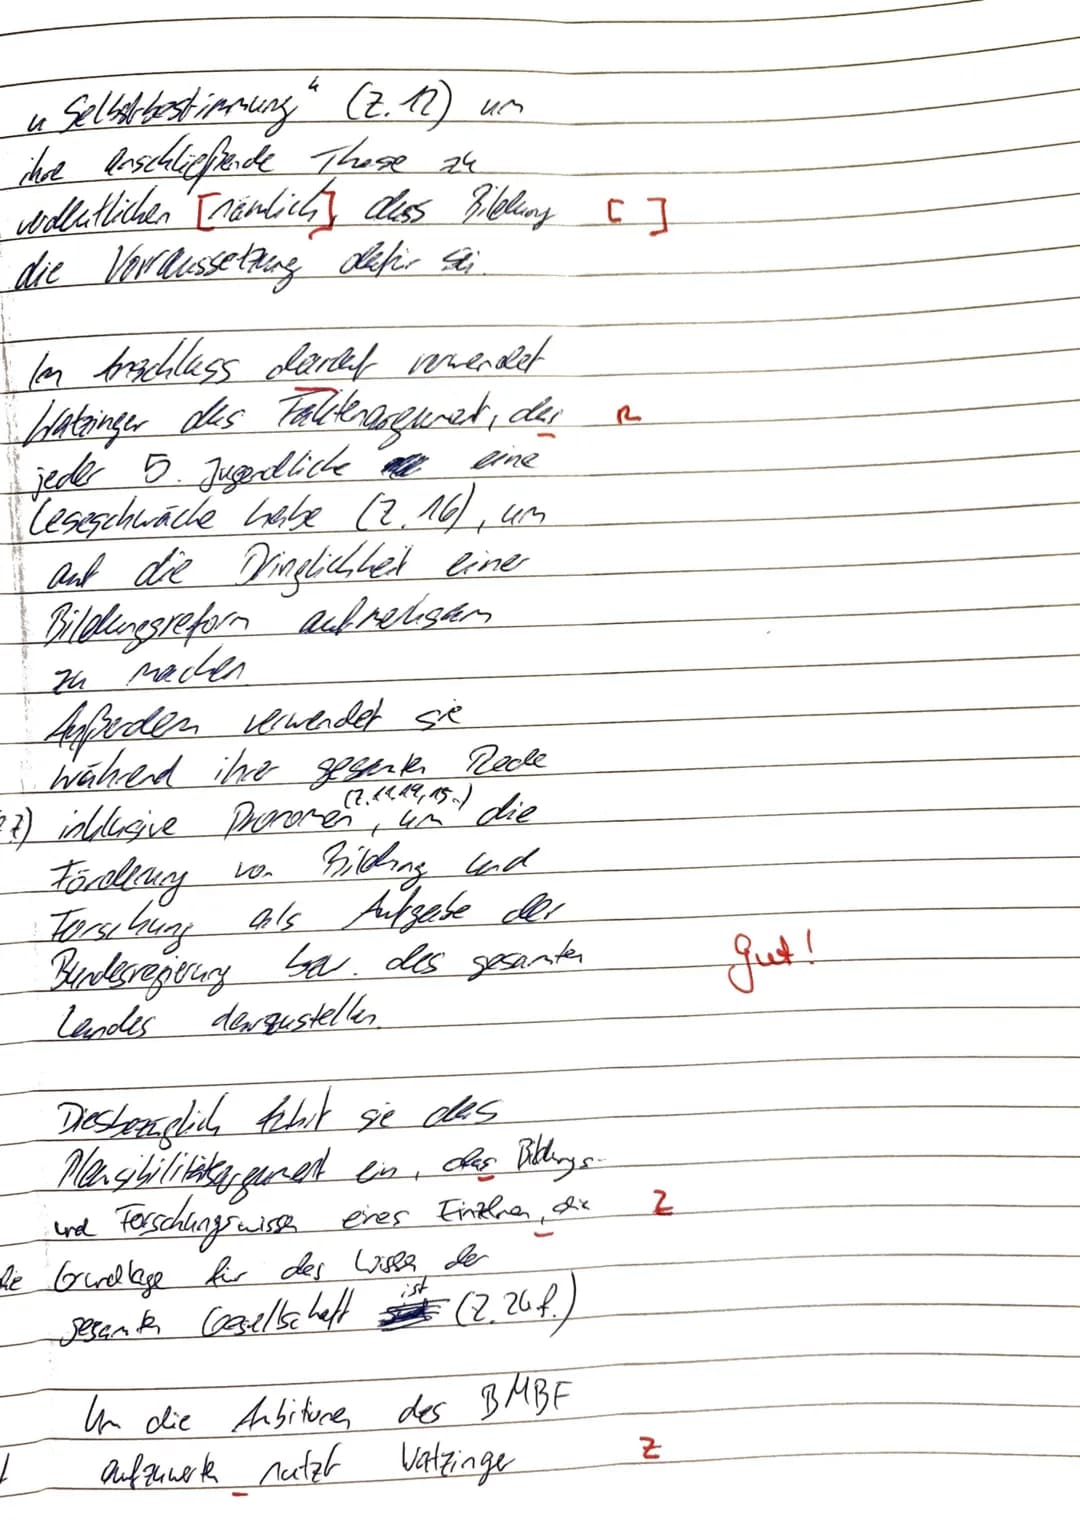 „Selbstbestimmung“ (Z. 12) um
ihre anschließende These zu
verdeutlichen [nämlich], dass Bildung [ ]
die Vorraussetzung dafür sei.
Im Anschluss darauf verwendet
Watzinger das Faktenargument, das R
jeder 5. Jugendliche eine
Leseschwäche habe (Z. 16), um
auf die Dringlichkeit einer
Bildungsreform aufmerksam
zu machen
Außerdem verwendet sie
während ihrer gesamten Rede
(Z. 11, 14, 15..)
inklusive Pronomen, um die
Förderung von Bildung und
Forschung als Aufgabe der
Bundesregierung bzw. des gesamten gut!
Landes darzustellen.
Diesbezüglich führt sie das
Plausibilitätsargument ein, das Bildungs-
und Forschungswissen eines Einzelnen, die Z
Grundlage für das Wissen der
ist
gesamten Gesellschaft (Z. 24f.)
Um die Ambitionen des BMBF
aufzuwerten nutzt Watzinger Z